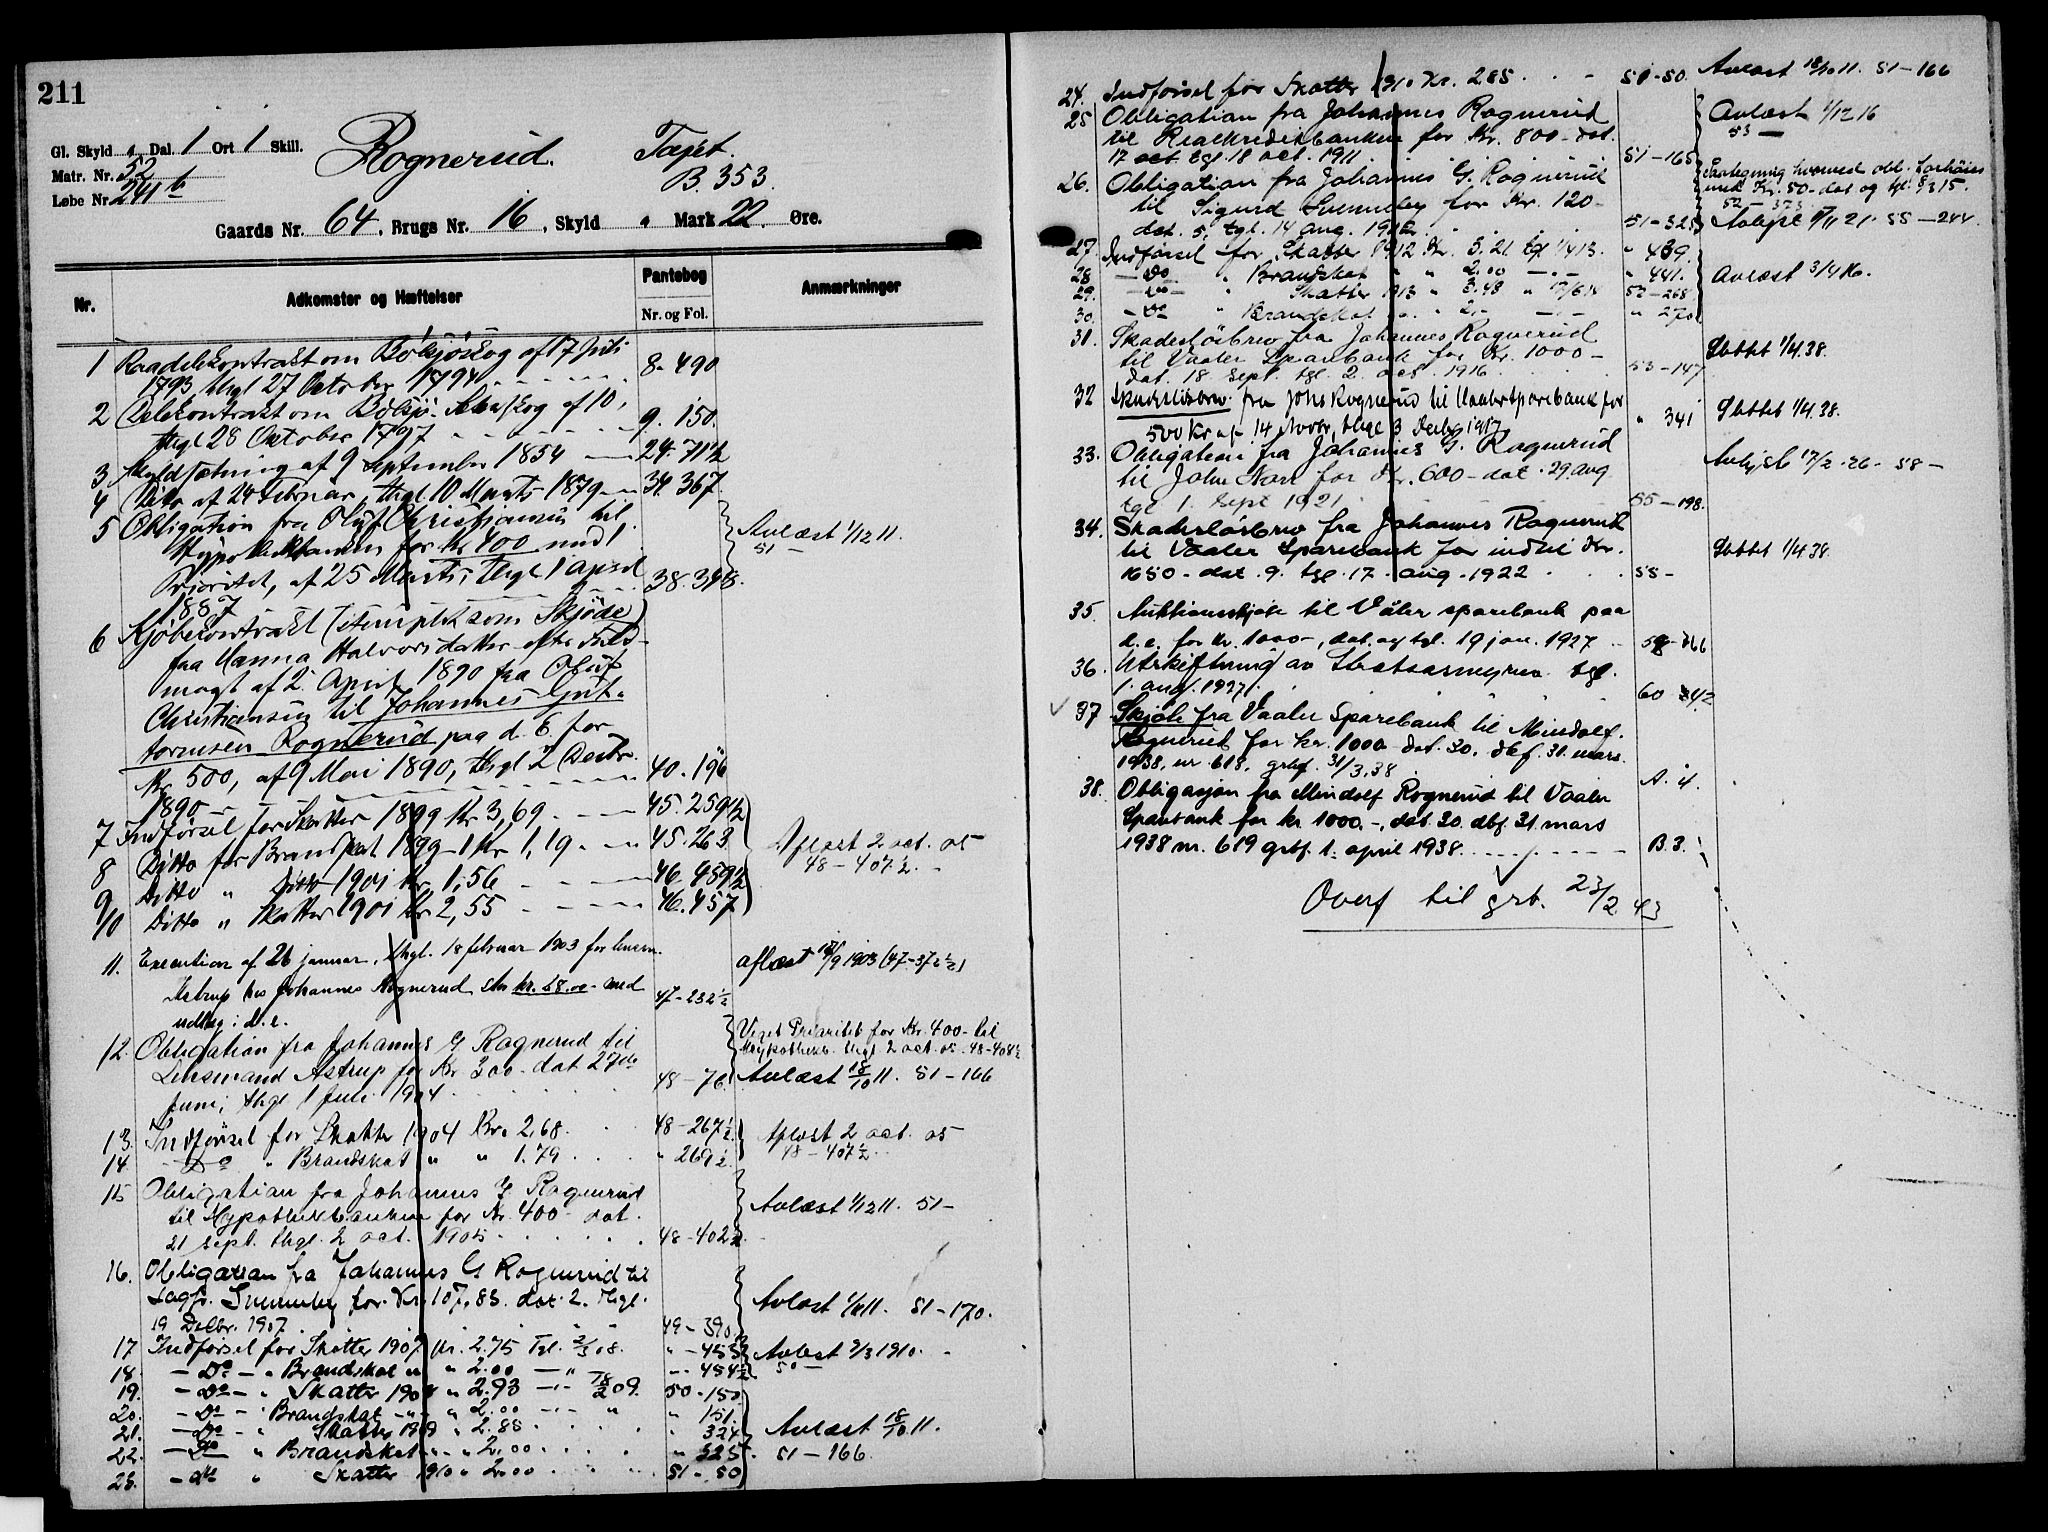 211
Gl. Skyld " Dal. 1 Ort 1 Skill.
Matr. Nr. 52
Løbe Nr. 241 b
Rognerud.
B. 353.
Gaards Nr. 64, Brugs Nr. 16, Skyld " Mark 22 Øre.
Nr.
Adkomster og Hæftelser
Pantebog
Nr. og Fol.
Anmærkninger
1 af 17 Juli
1793, thgl 27 October 1794
8. 490
2 Delekontrakt om skog af 10,
thgl 28 October 1797
9. 150.
3 Skyldsætning af 9 September 1854
24. 71½
4 Ditto af 24 Februar, thgl 10 Marts 1879
34. 367
5 Obligation fra Oluf Christiansen til
Hypothekbanken for Kr 400 med 1
Prioritet, af 25 Marts, thgl 1 April
1887
38. 348.
Avlæst 1/12 11.
51 —
6 Kjøbekontrakt (stemplet som Skjøde)
fra Hanna Halvorsdatter efter Fuld-
magt af 2 April 1890 fra Oluf
Christiansen til Johannes Gut-
tormsen Rognerud paa d. E. for
Kr 500, af 9 Mai 1890, thgl 2 Decbr.
1890
40. 196
7 Indførsel for Skatter 1899 Kr 3,69
45. 259½
8 Ditto for Brandskat 1899 - 1 Kr 1,19
45. 263
9 Ditto " Ditto 1901 Kr. 1,56
46. 459½
10 Ditto " Skatter 1901 Kr 2,55
46. 457
Aflæst 2 oct. 05
48 – 407½
11. Execution af 26 januar, thgl. 18 februar 1903 for
Astrup hos Johannes Rognerud kr. 58.00 med
udlæg i d. e.
47 - 232½
aflæst 1903
12. Obligation fra Johannes G Rognerud til
Lensmand Astrup for Kr 300 - dat 27de
Juni, thgl 1 Juli 1904
48 – 76.
Veget Prioritet for Kr. 400 - til
Hypothekb. thgl 2 oct. 05. 48-408½
Avlæst 18/10 11. 51 – 166
13. Indførsel for Skatter 1904 Kr. 2.68.
48 – 267½
14 Do " Brandskat " " 1.79
" 269½
Aflæst 2 oct. 05
48 – 407½
15 Obligation fra Johannes G Rognerud
til Hypothekbanken for Kr. 400 - dat.
21 sept. thgl. 2 oct. 1905
48 - 402½
Avlæst 1/12 11. 51 –
16. Obligation fra Johannes G Rognerud til
Sagf. Svenneby for Kr. 107,83. dat 2. thgl.
19 Decbr. 1907
49 – 390
51 – 170.
17 Indførsel for Skatter 1907 Kr. 2.75 Tgl. 2/3 08.
" – 453
18. – Do – " Brandskat " " 2.00 – " –
" – 454½
Avlæst 2/3 1910.
50 –
19. – Do – " Skatter 1908 " 2.93 – " – 18/2 09.
50 - 150
20. – Do – " Brandskat – " – " 2.00 – " – "
" 151.
21. – Do – " Skatter 1909 " 2.85
" 324
22. – Do " Brandskat " – " 2.00
" 325
23. – do " Skatter 1910 " 2.00
51 - 50
Avlæst 18/10 11.
51 – 166.
24. Indførsel for Skatter 1910 Kr. 2.85
51 - 50.
Avlæst 18/10 11. 51 – 166
25 Obligation fra Johannes Rognerud
til Realkreditbanken for Kr. 800 - dat.
17 oct. tgl. 18 oct. 1911
51 – 165
Avlæst 1/12 16
53 —
26. Obligation fra Johannes G. Rognerud
til Sigurd Svenneby for Kr. 120 –
dat. 5, tgl. 14 aug. 1912
51 – 325
Paategning hvorved obl. forhøies
med Kr. 50 - dat og tgl.
52 – 323
55 – 244
27. Indførsel for Skatter 1912 Kr. 5.21 tgl 1/4 13.
" 439.
28 – Do " Brandskat " " 2.00 – " –
" 441.
29. – Do – " Skatter 1913 " 3.48 "
52 – 268
30. – Do " Brandskat " 2.-
" 270
Avlæst 3/4 16.
31. Skadesløsbrev fra Johannes Rognerud
til Vaaler Sparebank for Kr. 1000 –
dat. 18 sept. tgl. 2. oct. 1916
53 – 147
Slettet 1/4 38.
32 Skadeslösbrev fra Johs Rognerud til Vaaler Sparebank for
500 Kr af 14 Novbr, thgl 3 Decbr 1917
" 341
Slettet 1/4 38.
33. Obligation fra Johannes G. Rognerud
til John for Kr. 600 – dat. 29 aug
tgl 1. sept 1921
55 – 198.
Avlyst 17/2 - 26 - 58 –
34. Skadesløsbrev fra Johannes Rognerud
til Vaaler Sparebank for indtil Kr.
1650 - dat. 9. tgl. 17. aug. 1922
55 –
Slettet 1/4 38.
35. Auktionsskjøte til Våler sparebank paa
d. e. for Kr. 1000 –, dat. og tgl. 19 jan. 1927
58 - 366
36. Utskiftning av tgl.
1. aug. 1927.
60 342
37 Skjøte fra Vaaler Sparebank til Mindolf
Rognerud for kr. 1000 - dat. 30. dbf. 31. mars
1938. nr. 618. grbf. 31/3.38
A. 4.
38. Obligasjon fra Mindolf Rognerud til Vaaler
Sparebank for kr 1000.-, dat. 30. dbf. 31 mars
1938 nr. 619 grbf. 1. april 1938
B. 3.
Overf til grb. 23/2 43